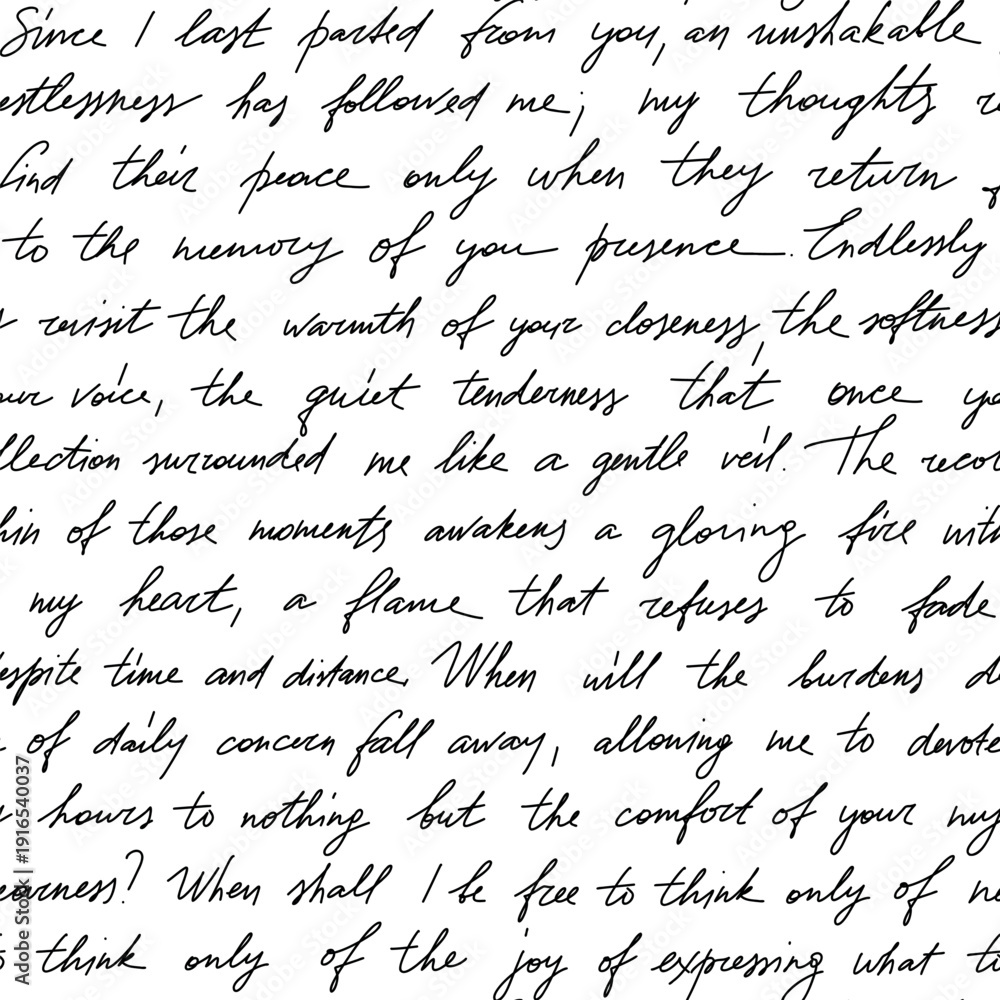 Since I last parted from you, an unshakable
estlessness has followed me; my thoughts r
find their peace only when they return
to the memory of you presence. Endlessly
revisit the warmth of your closeness, the softness
our voice, the quiet tenderness that once yo
llection surrounded me like a gentle veil. The recol
hin of those moments awakens a gloring fire with
my heart, a flame that refuses to fade
espite time and distance. When will the burdens d
of daily concern fall away, allowing me to devote
hours to nothing but the comfort of your my
earness? When shall I be free to think only of ne
to think only of the joy of expressing what ti
Adobe Stock | #1916540037